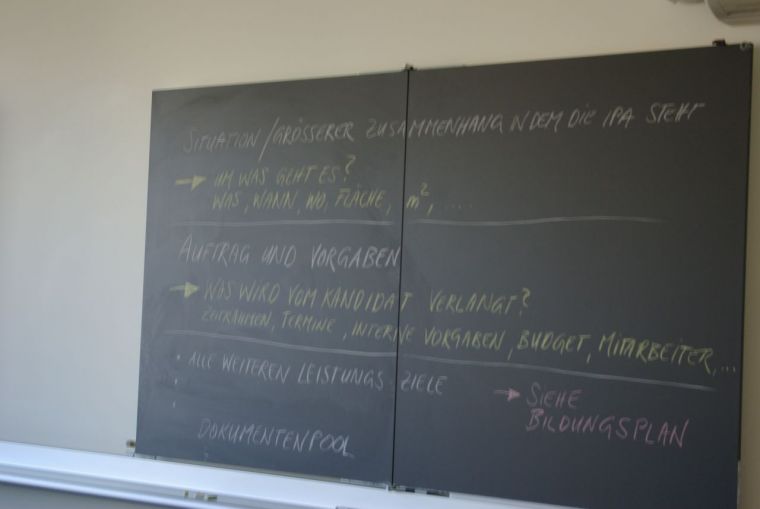 SITUATION / GRÖSSERER ZUSAMMENHANG IN DEM DIE IPA STEHT
→ UM WAS GEHT ES?
WAS, WANN, WO, FLÄCHE, m², ....
AUFTRAG UND VORGABEN
→ WAS WIRD VOM KANDIDAT VERLANGT?
ZEITRAHMEN, TERMINE, INTERNE VORGABEN, BUDGET, MITARBEITER, ...
• ALLE WEITEREN LEISTUNGSZIELE
→ SIEHE
BILDUNGSPLAN
DOKUMENTENPOOL